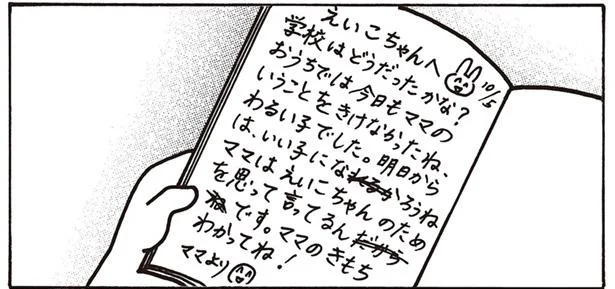 えいこちゃんへ 10/5
学校はどうだったかな？
おうちでは今日もママの
いうことをきけなかったね、
わるい子でした。明日から
は、いい子になれるかろうね
ママはえいこちゃんのため
を思って言ってるんだから
ねです。ママのきもち
わかってね！
ママより